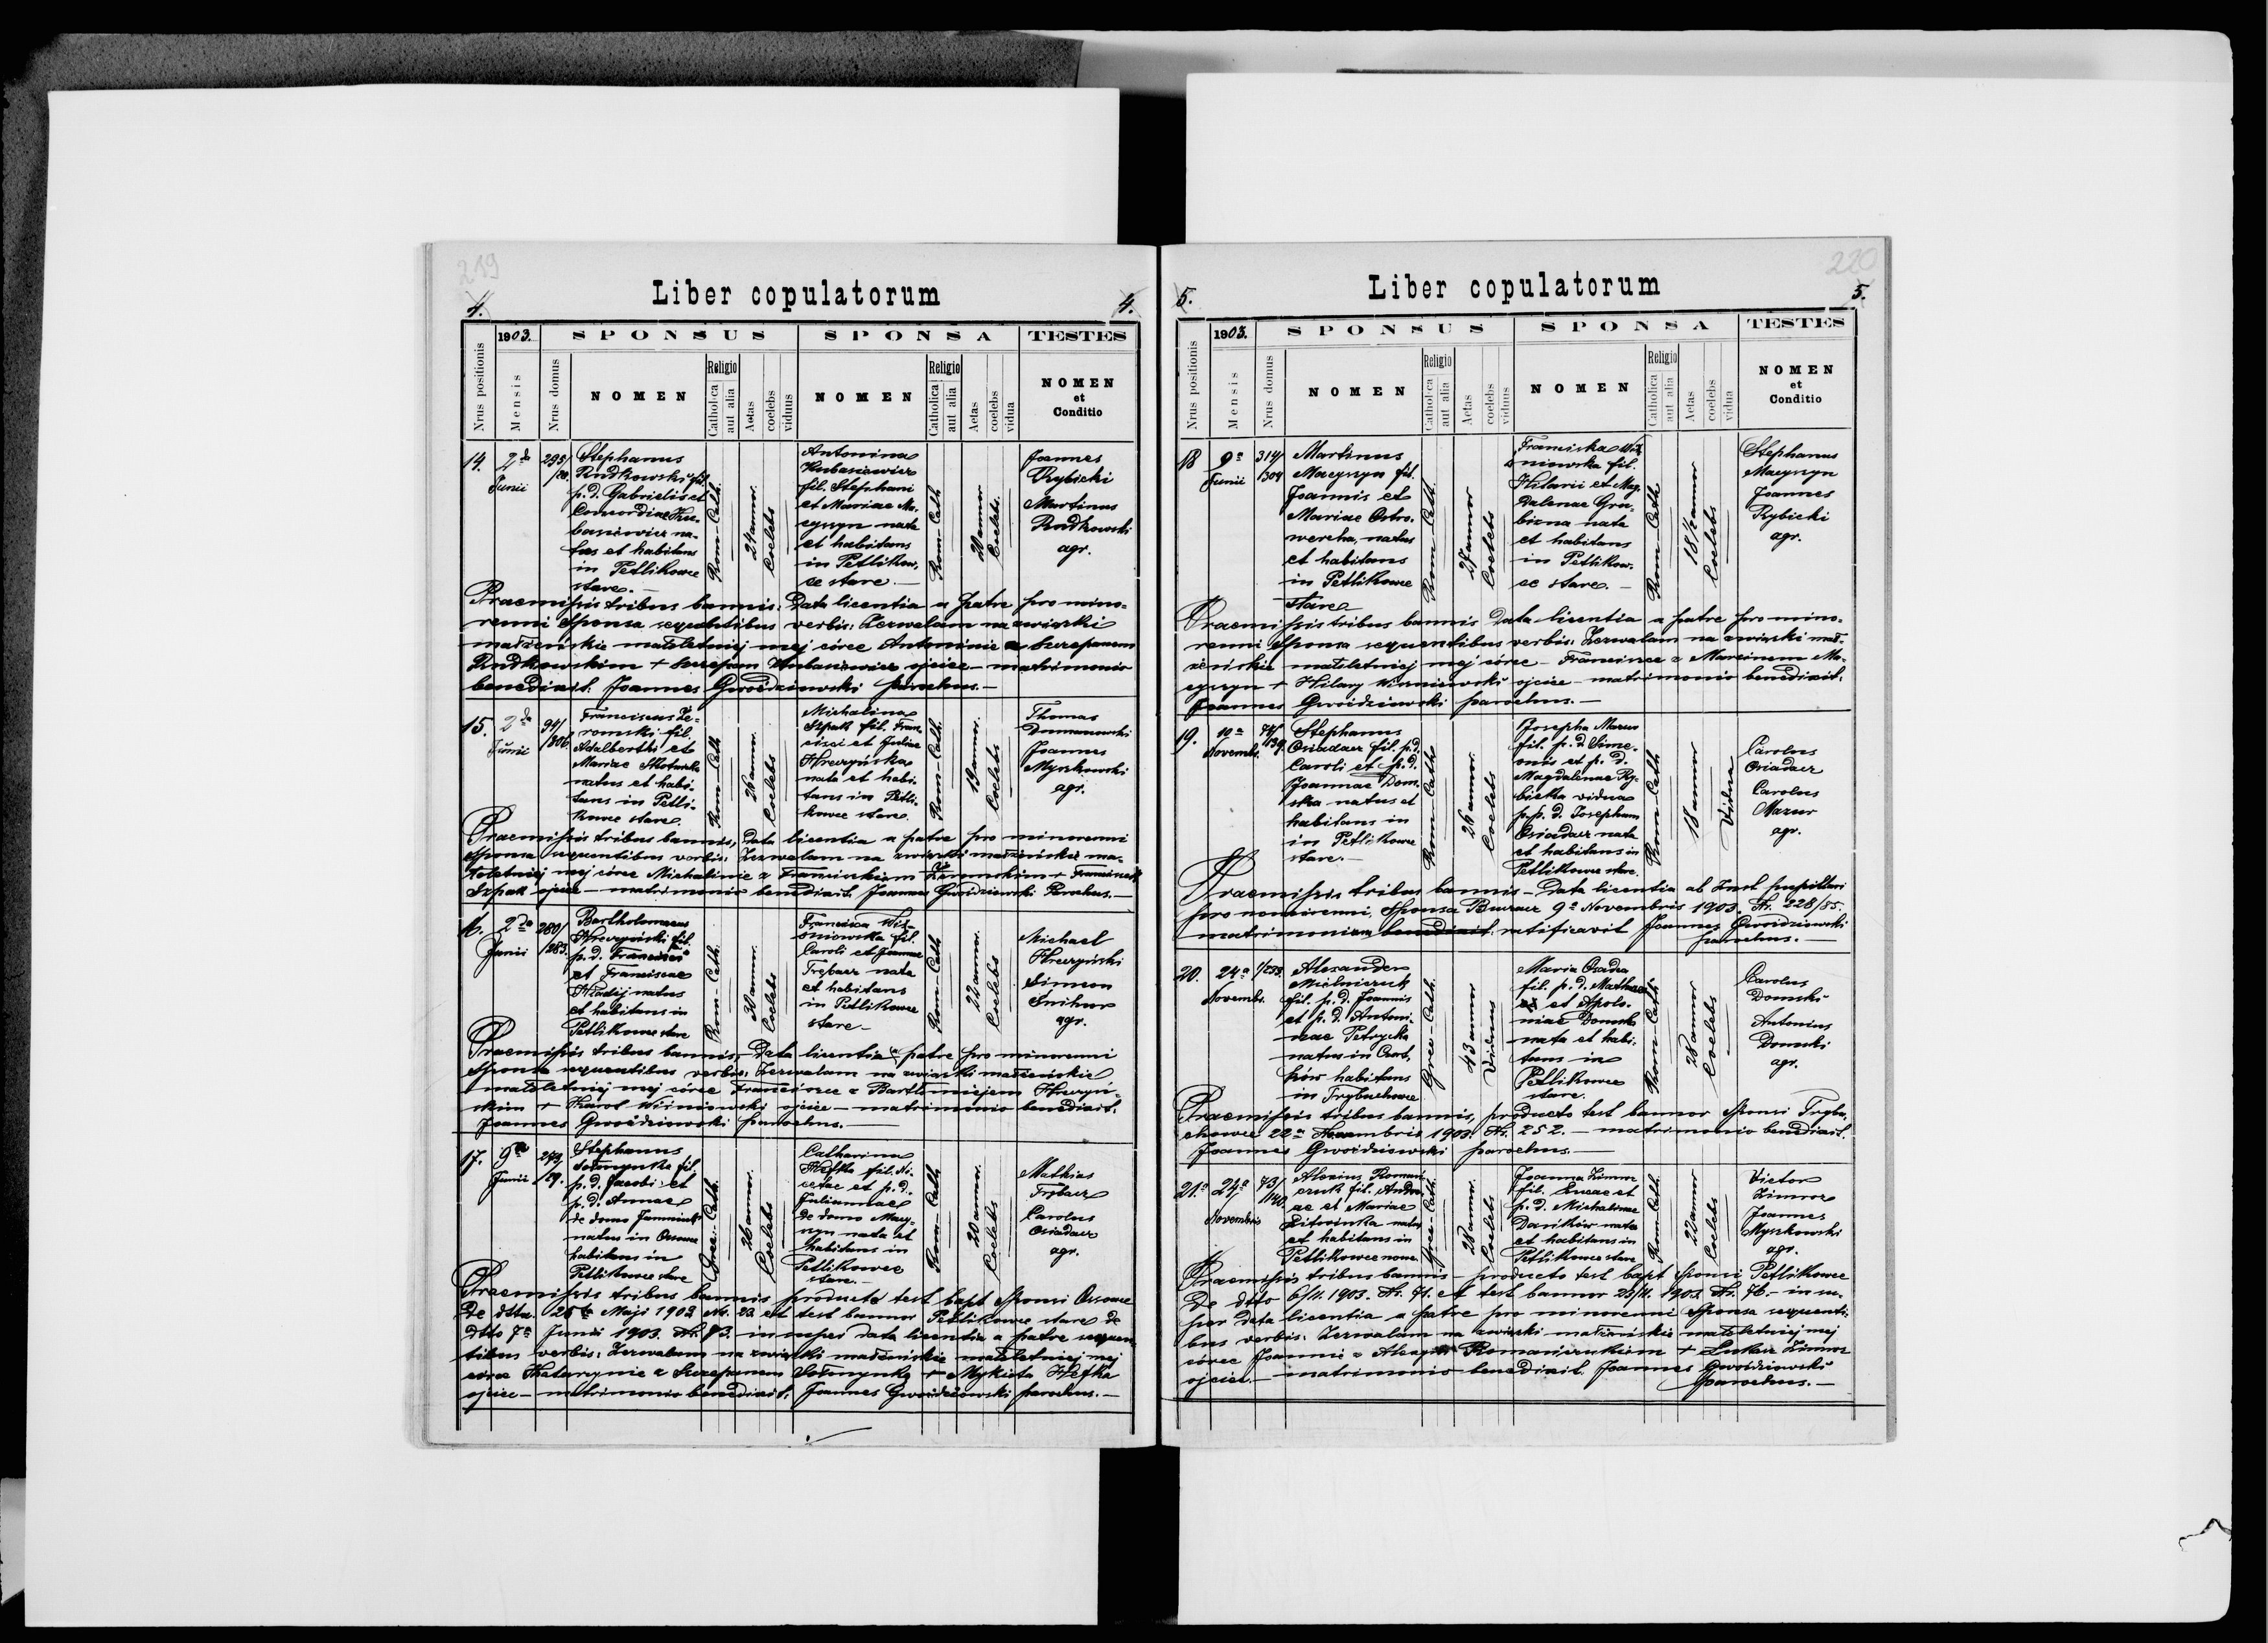 219
Liber copulatorum
4.
4.
1903.
SPONSUS
SPONSA
TESTES
Nrus positionis
Mensis
Nrus domus
NOMEN
Religio
Catholica
aut alia
Aetas
coelebs
viduus
NOMEN
Religio
Catholica
aut alia
Aetas
coelebs
vidua
NOMEN
et
Conditio
14.
2da
Junii
295/
Stephanus
Rudkowski fil.
p. d. Gabrielis et
Concordiae
na-
tus et habitans
in Petlikowce
stare.
Rom-Cath.
24 annor.
Coelebs
Antonina
fil. Stephani
et Mariae Ma-
czyszyn nata
et habitans
in Petlikow-
ce stare.
Rom-Cath
20 annor
Coelebs.
Joannes
Rybicki
Martinus
Rudkowski
agr.
Praemissis tribus bannis. Data licentia a patre pro mino-
renni sponsa sequentibus verbis: Zezwalam na związki
małżeńskie małoletniej mej córce Antoninie z Szczepanem
Rudkowskim + Szczepan ojciec – matrimonio
benedixit. Joannes Gwoździowski parochus.–
15.
2da
Junii
94/
306.
Franciscus Że-
romski fil.
Adalberthi et
Mariae
natus et habi-
tans in Petli-
kowce stare.
Rom-Cath
26 annor.
Coelebs
Michalina
Szpak fil. Fran-
cisci et Juliae
Hreczyńska
nata et habi-
tans in Petli-
kowce stare.
Rom-Cath.
19 annor.
Coelebs
Thomas
Domanowski
Joannes
Myszkowski
agr.
Praemissis tribus bannis, Data licentia a patre pro minorenni
sponsa sequentibus verbis: Zezwalam na związki małżeńskie ma-
łoletniej mej córce Michalinie z Franciszkiem Żeromskim + Franciszek
Szpak ojciec – matrimonio benedixit Joannes Gwoździowski Parochus.–
16.
2da
Junii
280/
283.
Bartholomaeus
Hreczyński fil.
p. d. Francisci
et Franciscae
natus
et habitans in
Petlikowce stare
Rom-Cath.
30 annor.
Coelebs
Francisca Wis-
niowska fil.
Caroli et Joannae
Trębacz nata
et habitans
in Petlikowce
stare –
Rom-Cath
22 annor.
Coelebs
Michael
Hreczyński
Simeon
Smihur
agr.
Praemissis tribus bannis, Data licentia a patre pro minorenni
sponsa sequentibus verbis: Zezwalam na związki małżeńskie
małoletniej mej córce Franciszce z Bartłomiejem Hreczyń-
skim + Karol Wiśniowski ojciec – matrimonio benedixit.
Joannes Gwoździowski parochus.–
17.
9a
Junii
273.
/29.
Stephanus
Sołmynka fil.
p. d. Jacobi et
p. d. Annae
de domo
natus in Ossowce
habitans in
Petlikowce stare
Grec-Cath.
26 annor.
Coelebs
Catharina
Hefka fil. Ni-
cetae et p. d.
Juliannae
de domo Maczy-
szyn nata et
habitans in
Petlikowce
stare.–
Rom-Cath
20 annor.
Coelebs
Mathias
Trębacz
Carolus
Osiadacz
agr.
Praemissis tribus bannis producto test bapt sponsi Ossowce
de dtto. 25ta Maji 1903 Nr. 23. et test bannor Petlikowce stare de
dtto 7a Junii 1903. Nr. 73. insuper data licentia a patre sequen-
tibus verbis: Zezwalam na związki małżeńskie małoletniej mej
córce Katarzynie z Szczepanem Sołmynką + Mykieta Hefka
ojciec – matrimonio benedixit: Joannes Gwoździowski parochus.–
220
Liber copulatorum
5.
5.
1903.
SPONSUS
SPONSA
TESTES
Nrus positionis
Mensis
Nrus domus
NOMEN
Religio
Catholica
aut alia
Aetas
coelebs
viduus
NOMEN
Religio
Catholica
aut alia
Aetas
coelebs
vidua
NOMEN
et
Conditio
18
9a
Junii
314/
304
Martinus
Maczyszyn fil.
Joannis et
Mariae Ostro-
wercha, natus
et habitans
in Petlikowce
stare
Rom-Cath.
27 annor
Coelebs
Franciska Wiś-
niowska fil.
Hilarii et Mag-
dalenae Gra-
bizna nata
et habitans
in Petlikow-
ce stare.–
Rom-Cath
18 1/2 annor
Coelebs
Stephanus
Maczyszyn
Joannes
Rybicki
agr.
Praemissis tribus bannis Data licentia a patre pro mino-
renni sponsa sequentibus verbis: Zezwalam na związki mał-
żeńskie małoletniej mej córce – Franciszce z Marcinem Ma-
czyszyn + Hilary Wiśniowski ojciec – matrimonio benedixit.
Joannes Gwoździowski parochus.–
19.
10a
Novembr.
74/
139.
Stephanus
Osiadacz fil. p. d.
Caroli et p. d.
Joannae Dom-
ska natus et
habitans in
in Petlikowce
stare.–
Rom-Cath
26 annor.
Coelebs
Josepha Mazur
fil. p. d. Sime-
onis et p. d.
Magdalenae Ry-
bicka vidua
p. p. d. Josephum
Osiadacz nata
et habitans in
Petlikowce stare.
Rom-Cath
18 annor
Vidua
Carolus
Osiadacz
Carolus
Mazur
agr.
Praemissis tribus bannis – Data licentia ab Inst pupillari
pro nominrenni sponsa Buczacz 9a Novembris 1903. Nr. 228/85.
matrimonium benedixit. ratificavit Joannes Gwoździowski
parochus.–
20.
24a
Novembr.
1/253.
Alexander
Mielniczuk
fil. p. d. Joannis
et p. d. Antoni-
nae Petrycka
natus in Czort-
ków habitans
in Trybuchowce
Grec-Cath.
43 annor
Viduus
Maria Osadca
fil. p. d.
et Apolo-
niae Domska
nata et habi-
tans in
Petlikowce
stare.
Rom-Cath
28 annor
Coelebs
Carolus
Domski
Antonius
Domski
agr.
Praemissis tribus bannis, producto test bannor sponsi Trybu-
chowce 22a Novembris 1903. Nr. 252. – matrimonio benedixit.
Joannes Gwoździowski parochus.–
21.
24a
Novembris
73/
140.
Alexius Romani-
czuk fil. Andre-
ae et Mariae
Litwinka natus
et habitans in
Petlikowce nowe.
Grec-Cath.
28 annor.
Coelebs
Joanna Zimroz
fil. Lucae et
p. d. Michalinae
Daników nata
et habitans in
Petlikowce stare
Rom-Cath.
22 annor
Coelebs
Victor
Zimroz
Joannes
Myszkowski
agr.
Praemissis tribus bannis – producto test bapt sponsi Petlikowce
de dtto 6/11. 1903. Nr. 71. et test bannor 23/11. 1903. Nr. 76.– insu-
per data licentia a patre pro minorenni sponsa sequenti-
bus verbis: Zezwalam na związki małżeńskie małoletniej mej
córce Joannie z Romaniczukiem + Łukasz Zimroz
ojciec.– matrimonio benedixit Joannes Gwoździowski
parochus.–